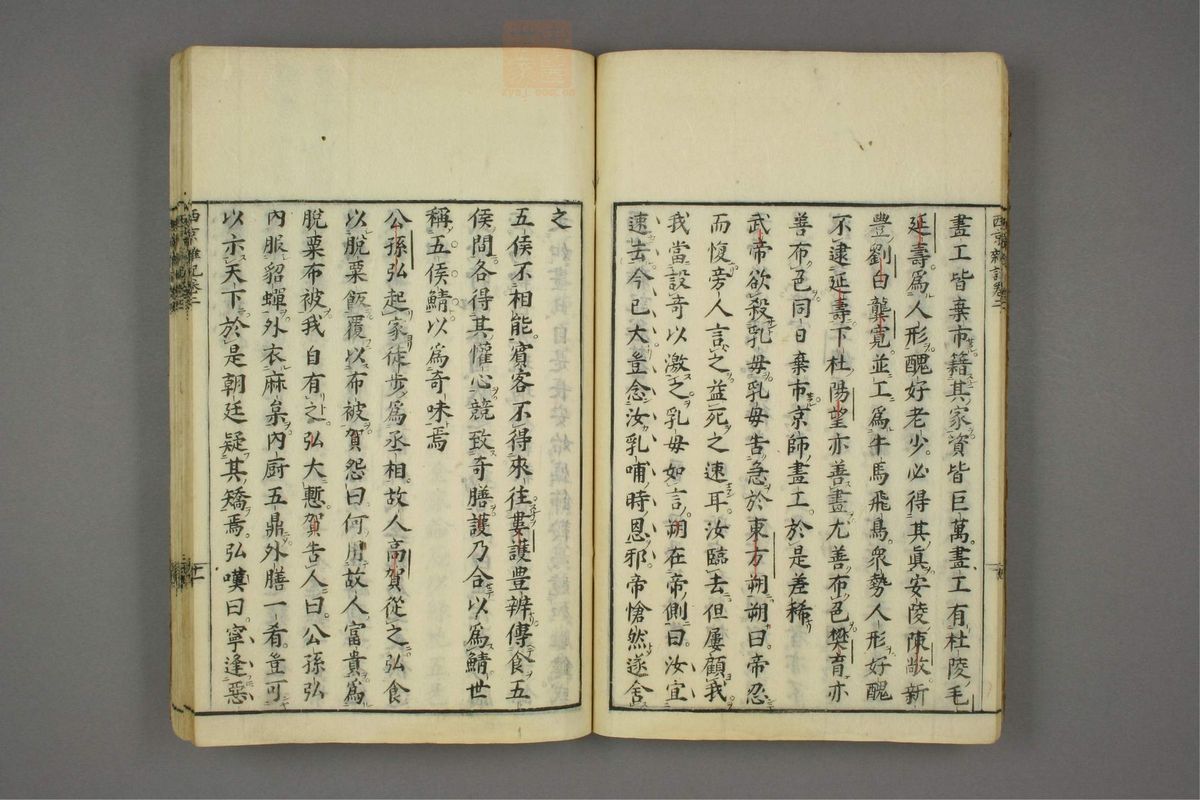 畫工皆棄市籍其家資皆巨萬畫工有杜陵毛
延壽爲人形醜好老少必得其眞安陵陳敞新
豐劉白龔寛並工爲牛馬飛鳥衆勢人形好醜
不逮延壽下杜陽望亦善畫尤善布色樊育亦
善布色同日棄市京師畫工於是差稀
武帝欲殺乳母乳母告急於東方朔朔曰帝忍
而愎旁人言之益死之速耳汝臨去但屢顧我
我當設奇以激之乳母如言朔在帝側曰汝宜
速去今已大豈念汝乳哺時恩邪帝愴然遂舍
之
五侯不相能賓客不得來往婁護豊辨傳食五
侯間各得其懽心競致奇膳護乃合以爲鯖世
稱五侯鯖以爲奇味焉
公孫弘起家徒步爲丞相故人高賀從之弘食
以脫粟飯覆以布被賀怨曰何用故人富貴爲
脫粟布被我自有之弘大慙賀告人曰公孫弘
內服貂蟬外衣麻枲內厨五鼎外膳一肴豈可
以示天下於是朝廷疑其矯焉弘嘆曰寧逢惡
西京雜記卷二